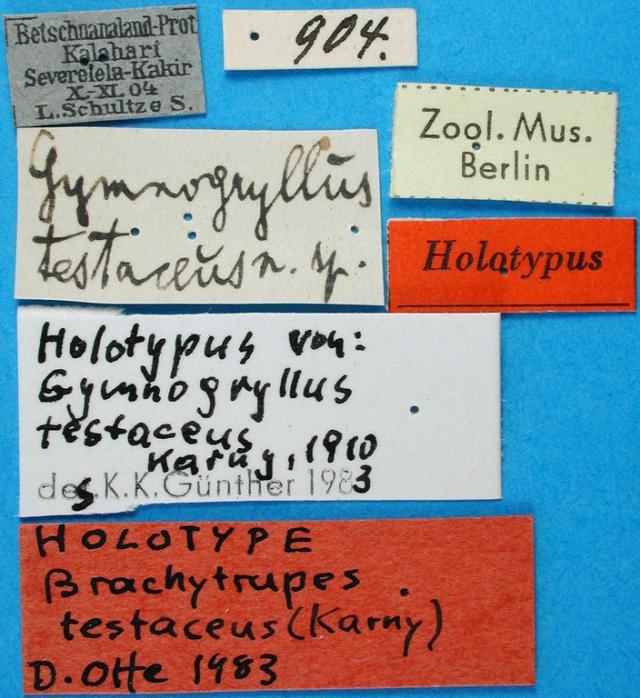 Betschnanaland-Prot
Kalahari
Severelela-Kakir
X.-XI. 04
L. Schultze S.
904.
Zool. Mus.
Berlin
Gymnogryllus
testaceus n. sp.
Holotypus
Holotypus von:
Gymnogryllus
testaceus
Karny, 1910
K.K. Günther 1983
HOLOTYPE
Brachytrupes
testaceus (Karny)
D. Otte 1983